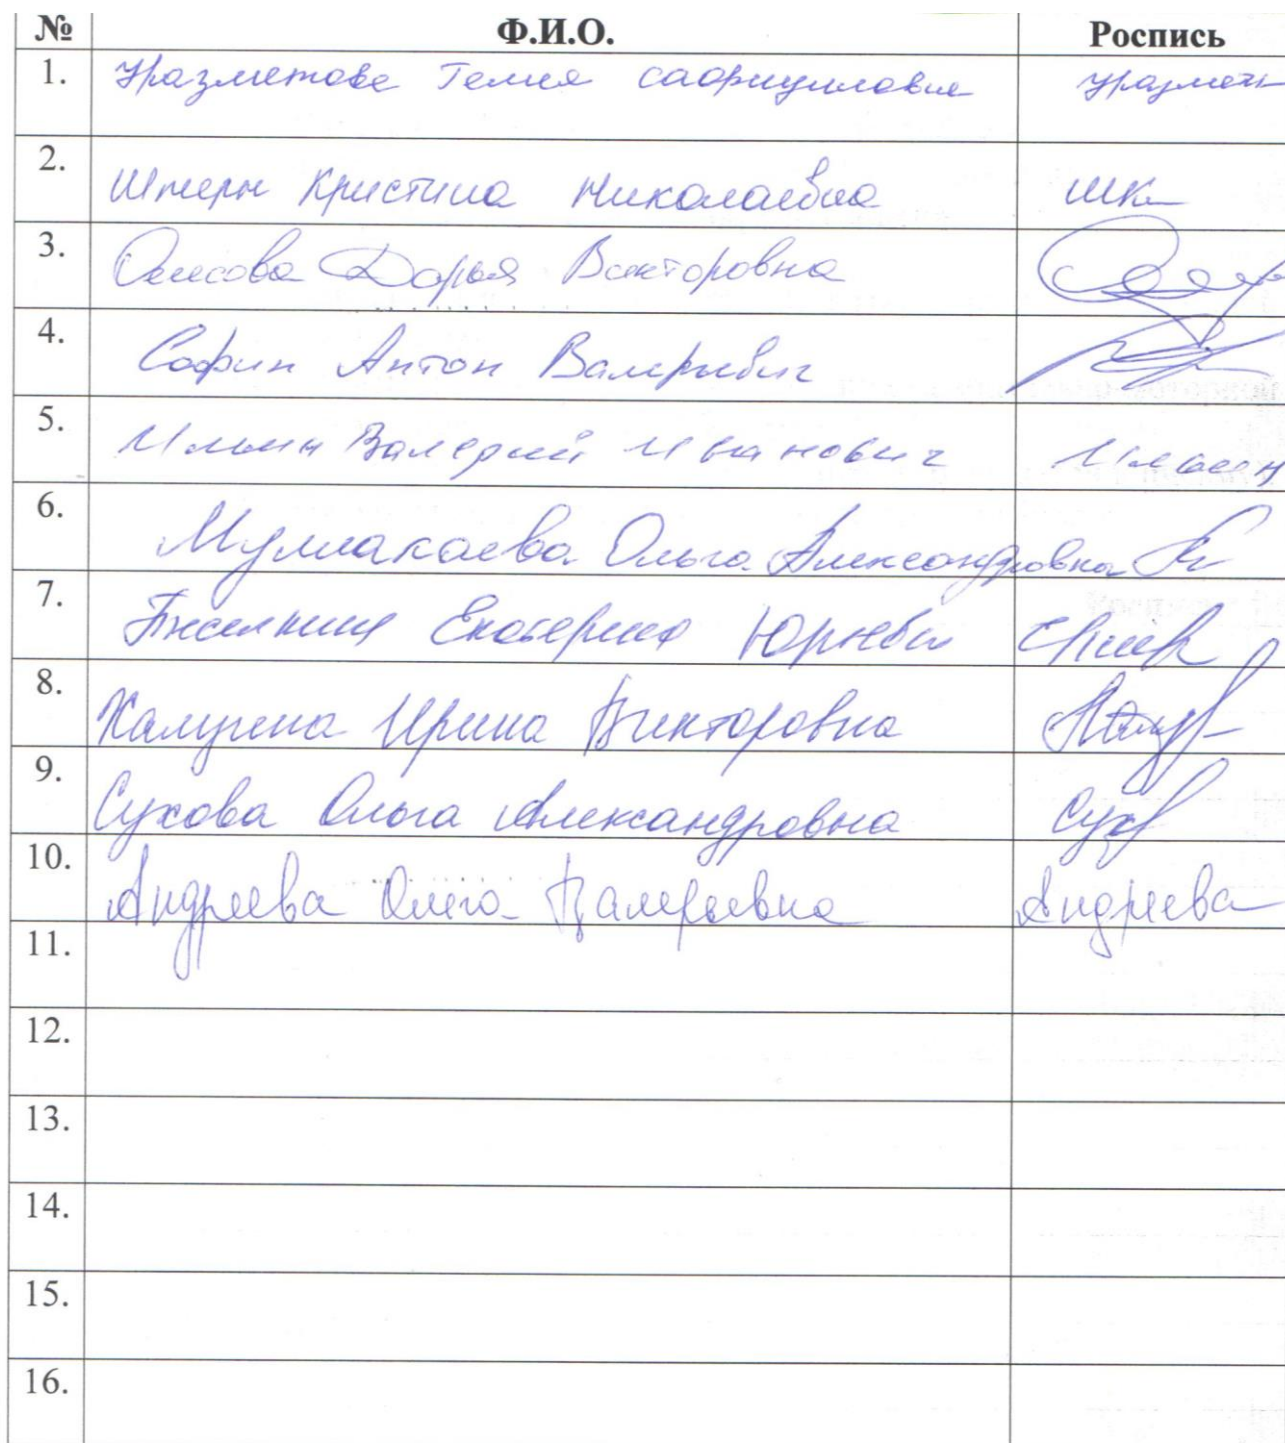 № Ф.И.О. Роспись
1. Уразметова
2. Штерн Кристина Николаевна
3. Дарья Викторовна
4. Софин Антон Валерьевич
5. Ильин Валерий Иванович Ильин
6. Муллакаева Ольга Александровна
7. Екатерина Юрьевна
8. Калугина Ирина Викторовна
9. Сухова Ольга Александровна Сух
10. Андреева Ольга Валерьевна Андреева
11.
12.
13.
14.
15.
16.